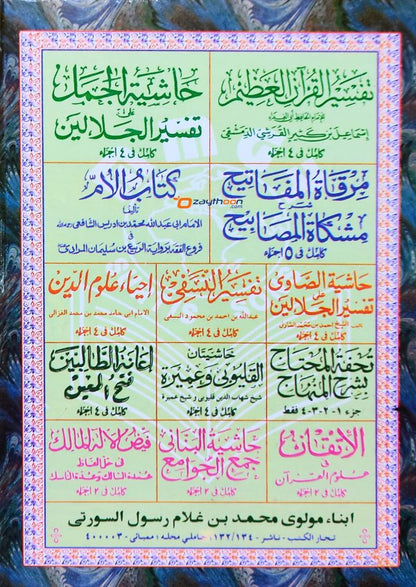 تفسير القرآن العظيم
للإمام الحافظ أبي الفداء
إسماعيل بن كثير القرشي الدمشقي
كامل في ٤ اجزاء
حاشية الجمل
على
تفسير الجلالين
كامل في ٤ اجزاء
مرقاة المفاتيح
شرح
مشكاة المصابيح
كامل في ٥ اجزاء
كتاب الأم
تأليف
الامام ابي عبدالله محمد بن ادريس الشافعي
فروع الفقه برواية الربيع بن سليمان المرادي
ozaythoon.com
حاشية الصاوى
على
تفسير الجلالين
الشيخ احمد بن محمد الصاوى
كامل في ٤ اجزاء
تفسير النسفى
عبدالله بن احمد بن محمود النسفى
كامل في ٤ اجزاء
إحياء علوم الدين
الامام ابى حامد محمد بن محمد الغزالى
كامل في ٤ اجزاء
تحفة المحتاج
بشرح المنهاج
جزء ١-٢-٣-٤ فقط
حاشيتان
القليوبى وعميرة
شيخ شهاب الدين قليوبى و شيخ عميرة
كامل في ٤ اجزاء
إعانة الطالبين
فتح المعين
كامل في ٤ اجزاء
الإتقان
في
علوم القرآن
كامل في ٢ اجزاء
حاشية البنانى
على
جمع الجوامع
كامل في ٢ اجزاء
فيض الإله المالك
في حل الفاظ
عمدة السالك وعدة الناسك
كامل في ٢ اجزاء
ابناء مولوى محمد بن غلام رسول السورتى
تجار الكتب - ناشر - ١٣٢/١٣٤، جاملي محله، ممبائى - ٤٠٠٠٠٣